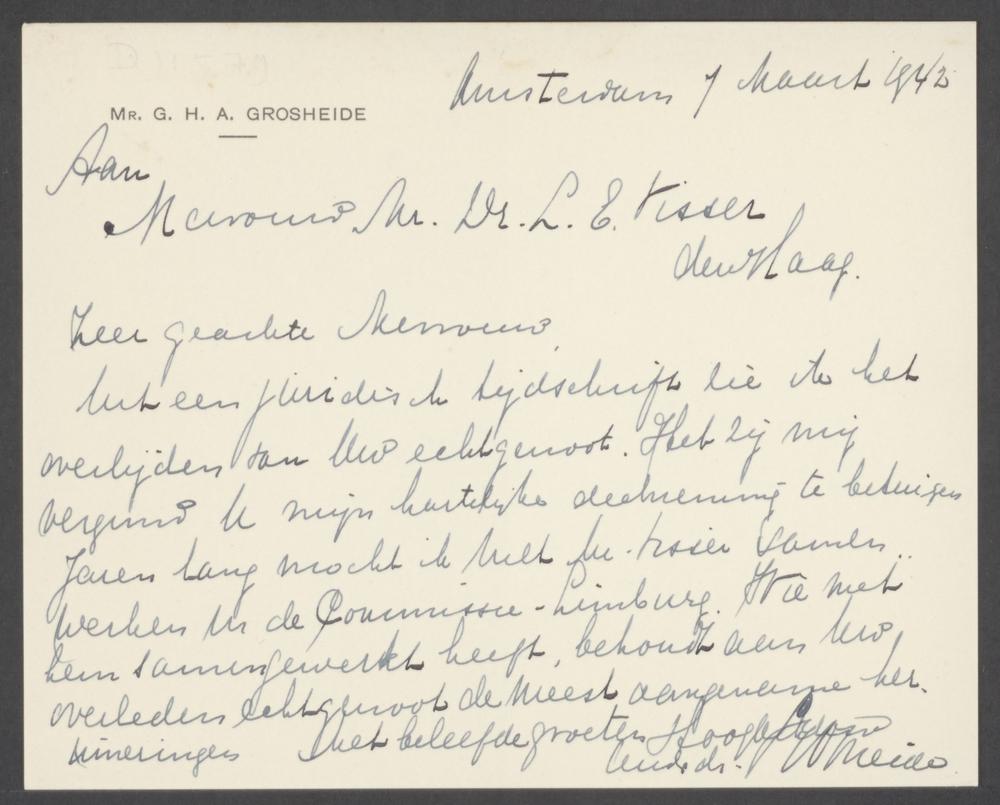 Amsterdam 7 Maart 1942
MR. G. H. A. GROSHEIDE
Aan
Mevrouw Mr. Dr. L. E. Visser
den Haag.
Zeer geachte Mevrouw,
Uit een juridisch tijdschrift zie ik het
overlijden van Uw echtgenoot. Het zij mij
vergund U mijn hartelijke deelneming te betuigen
Jaren lang mocht ik met Mr. Visser samen-
werken in de Commissie-Limburg. Wie met
hem samengewerkt heeft, behoudt aan Uw
overleden echtgenoot de meest aangename her-
inneringen Met beleefde groeten Hoogachtend